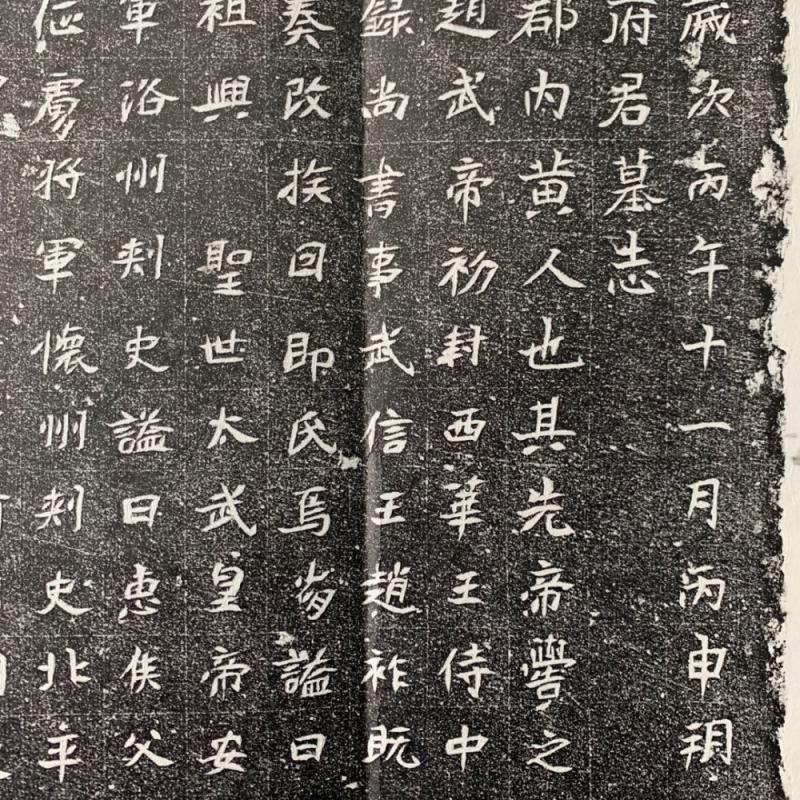 歲次丙午十一月丙申朔
府君墓志
郡内黄人也其先帝嚳之
趙武帝初封西華王侍中
録尚書事武信王趙祚既
奏改族因即氏焉謚曰
祖興 聖世太武皇帝安
軍洛州刾史謚曰惠侯父
征虜将軍懷州刾史北平